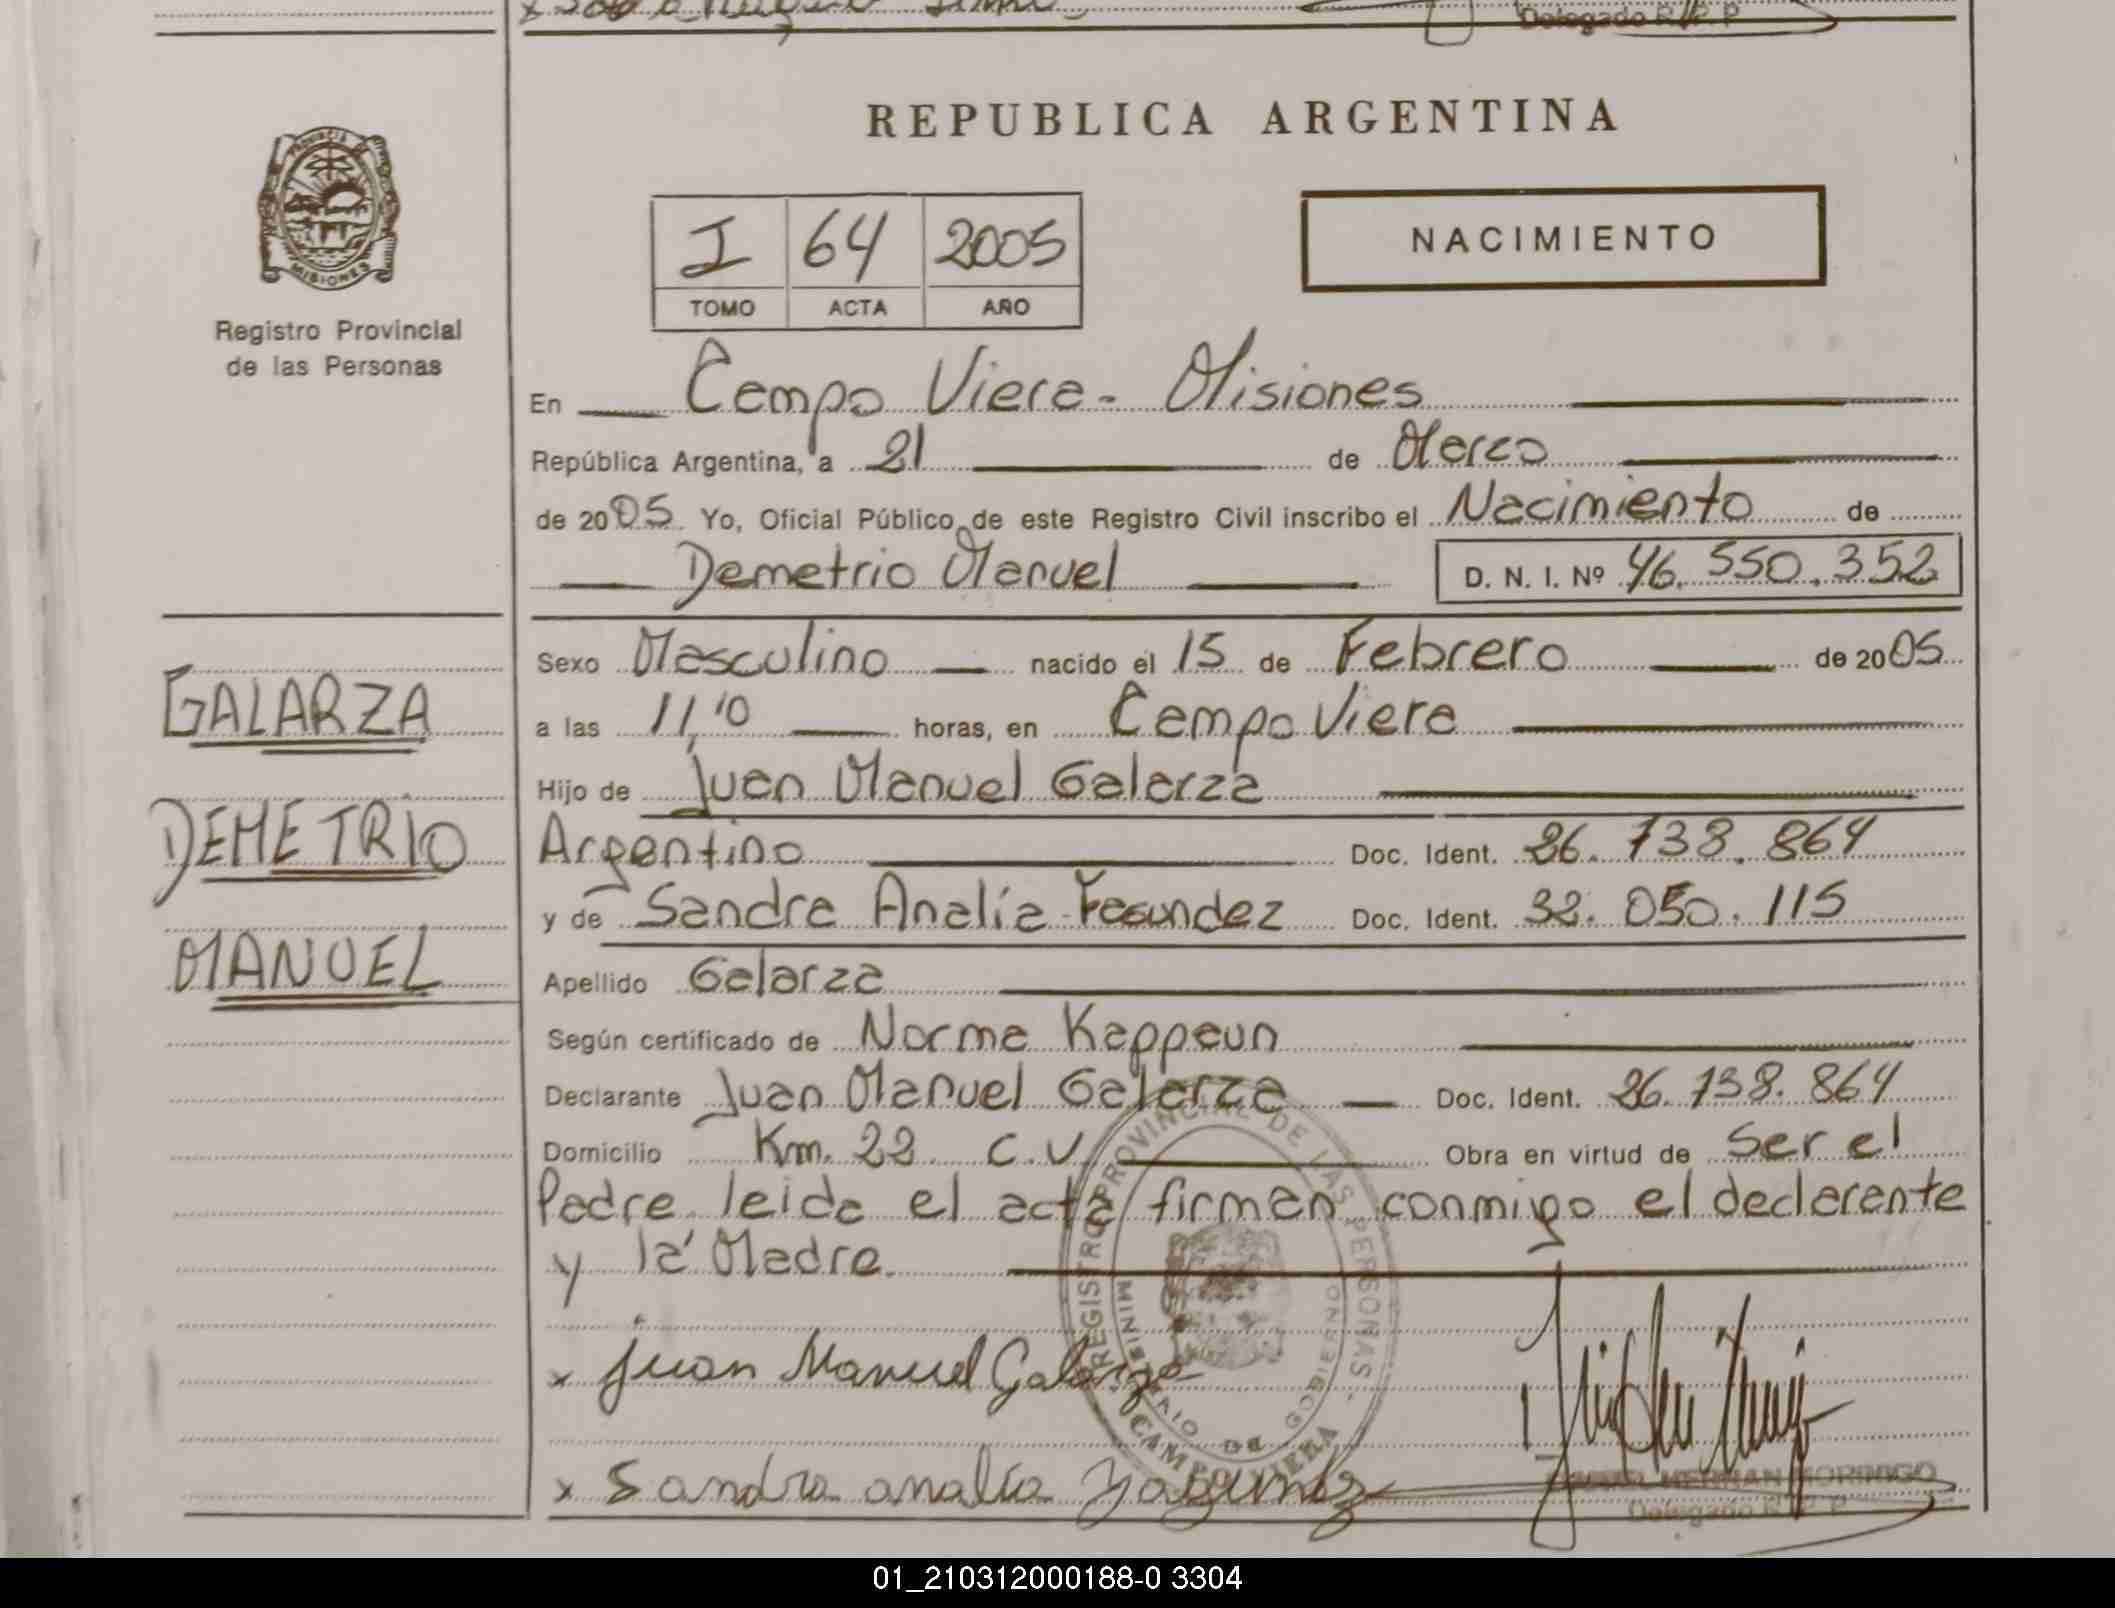 Delegado R. P. P.
REPUBLICA ARGENTINA
PROVINCIA DE
MISIONES
Registro Provincial
de las Personas
I 64 2005
TOMO ACTA AÑO
NACIMIENTO
En Campo Viera - Misiones
República Argentina, a 21 de Marzo
de 2005 Yo, Oficial Público de este Registro Civil inscribo el Nacimiento de
Demetrio Manuel D. N. I. Nº 46.550.352
Sexo Masculino nacido el 15 de Febrero de 2005
GALARZA
a las 11,10 horas, en Campo Viera
Hijo de Juan Manuel Galarza
DEMETRIO
Argentino Doc. Ident. 26.738.864
y de Sandra Analía Fagundez Doc. Ident. 32.050.115
MANUEL
Apellido Galarza
Según certificado de Norma Kappaun
Declarante Juan Manuel Galarza Doc. Ident. 26.738.864
Domicilio Km. 22 C.V. Obra en virtud de Ser el
Padre leida el acta firman conmigo el declarante
y la Madre.
x Juan Manuel Galarza
x Sandra analia
REGISTRO PROVINCIAL DE LAS PERSONAS
MINISTERIO DE GOBIERNO
CAMPO VIERA
HERNAN
Delegado R. P. P.
01_210312000188-0 3304